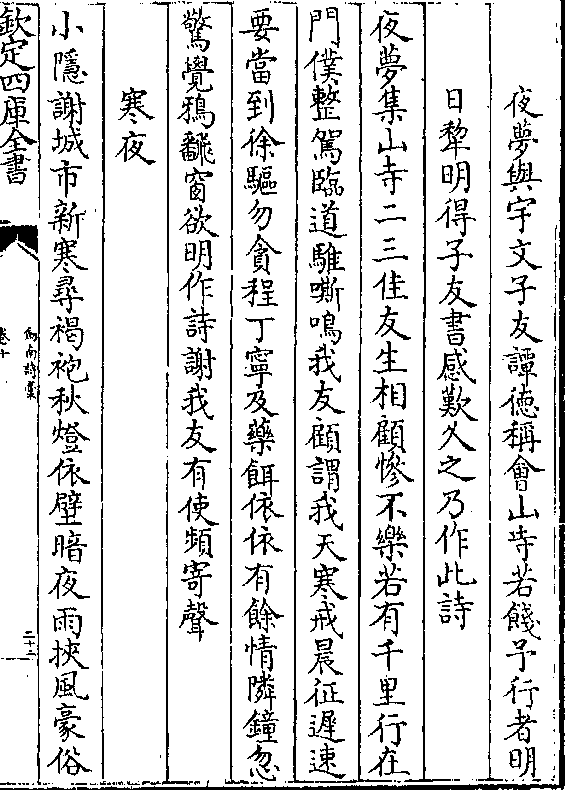 夜夢與宇文子友譚徳稱㑹山寺若餞予行者明
日犂明得子友書感歎久之乃作此詩
夜夢集山寺二三佳友生相顧慘不樂若有千里行在
門僕整駕臨道騅嘶鳴我友顧謂我天寒戒晨征遲速
要當到徐驅勿貪程丁寧及藥餌依依有餘情隣鐘忽
驚覺鴉翻窗欲明作詩謝我友有使頻寄聲
寒夜
小隠謝城市新寒尋褐袍秋燈依壁暗夜雨挾風豪俗
欽定四庫全書
劍南詩藁
卷十
二十二